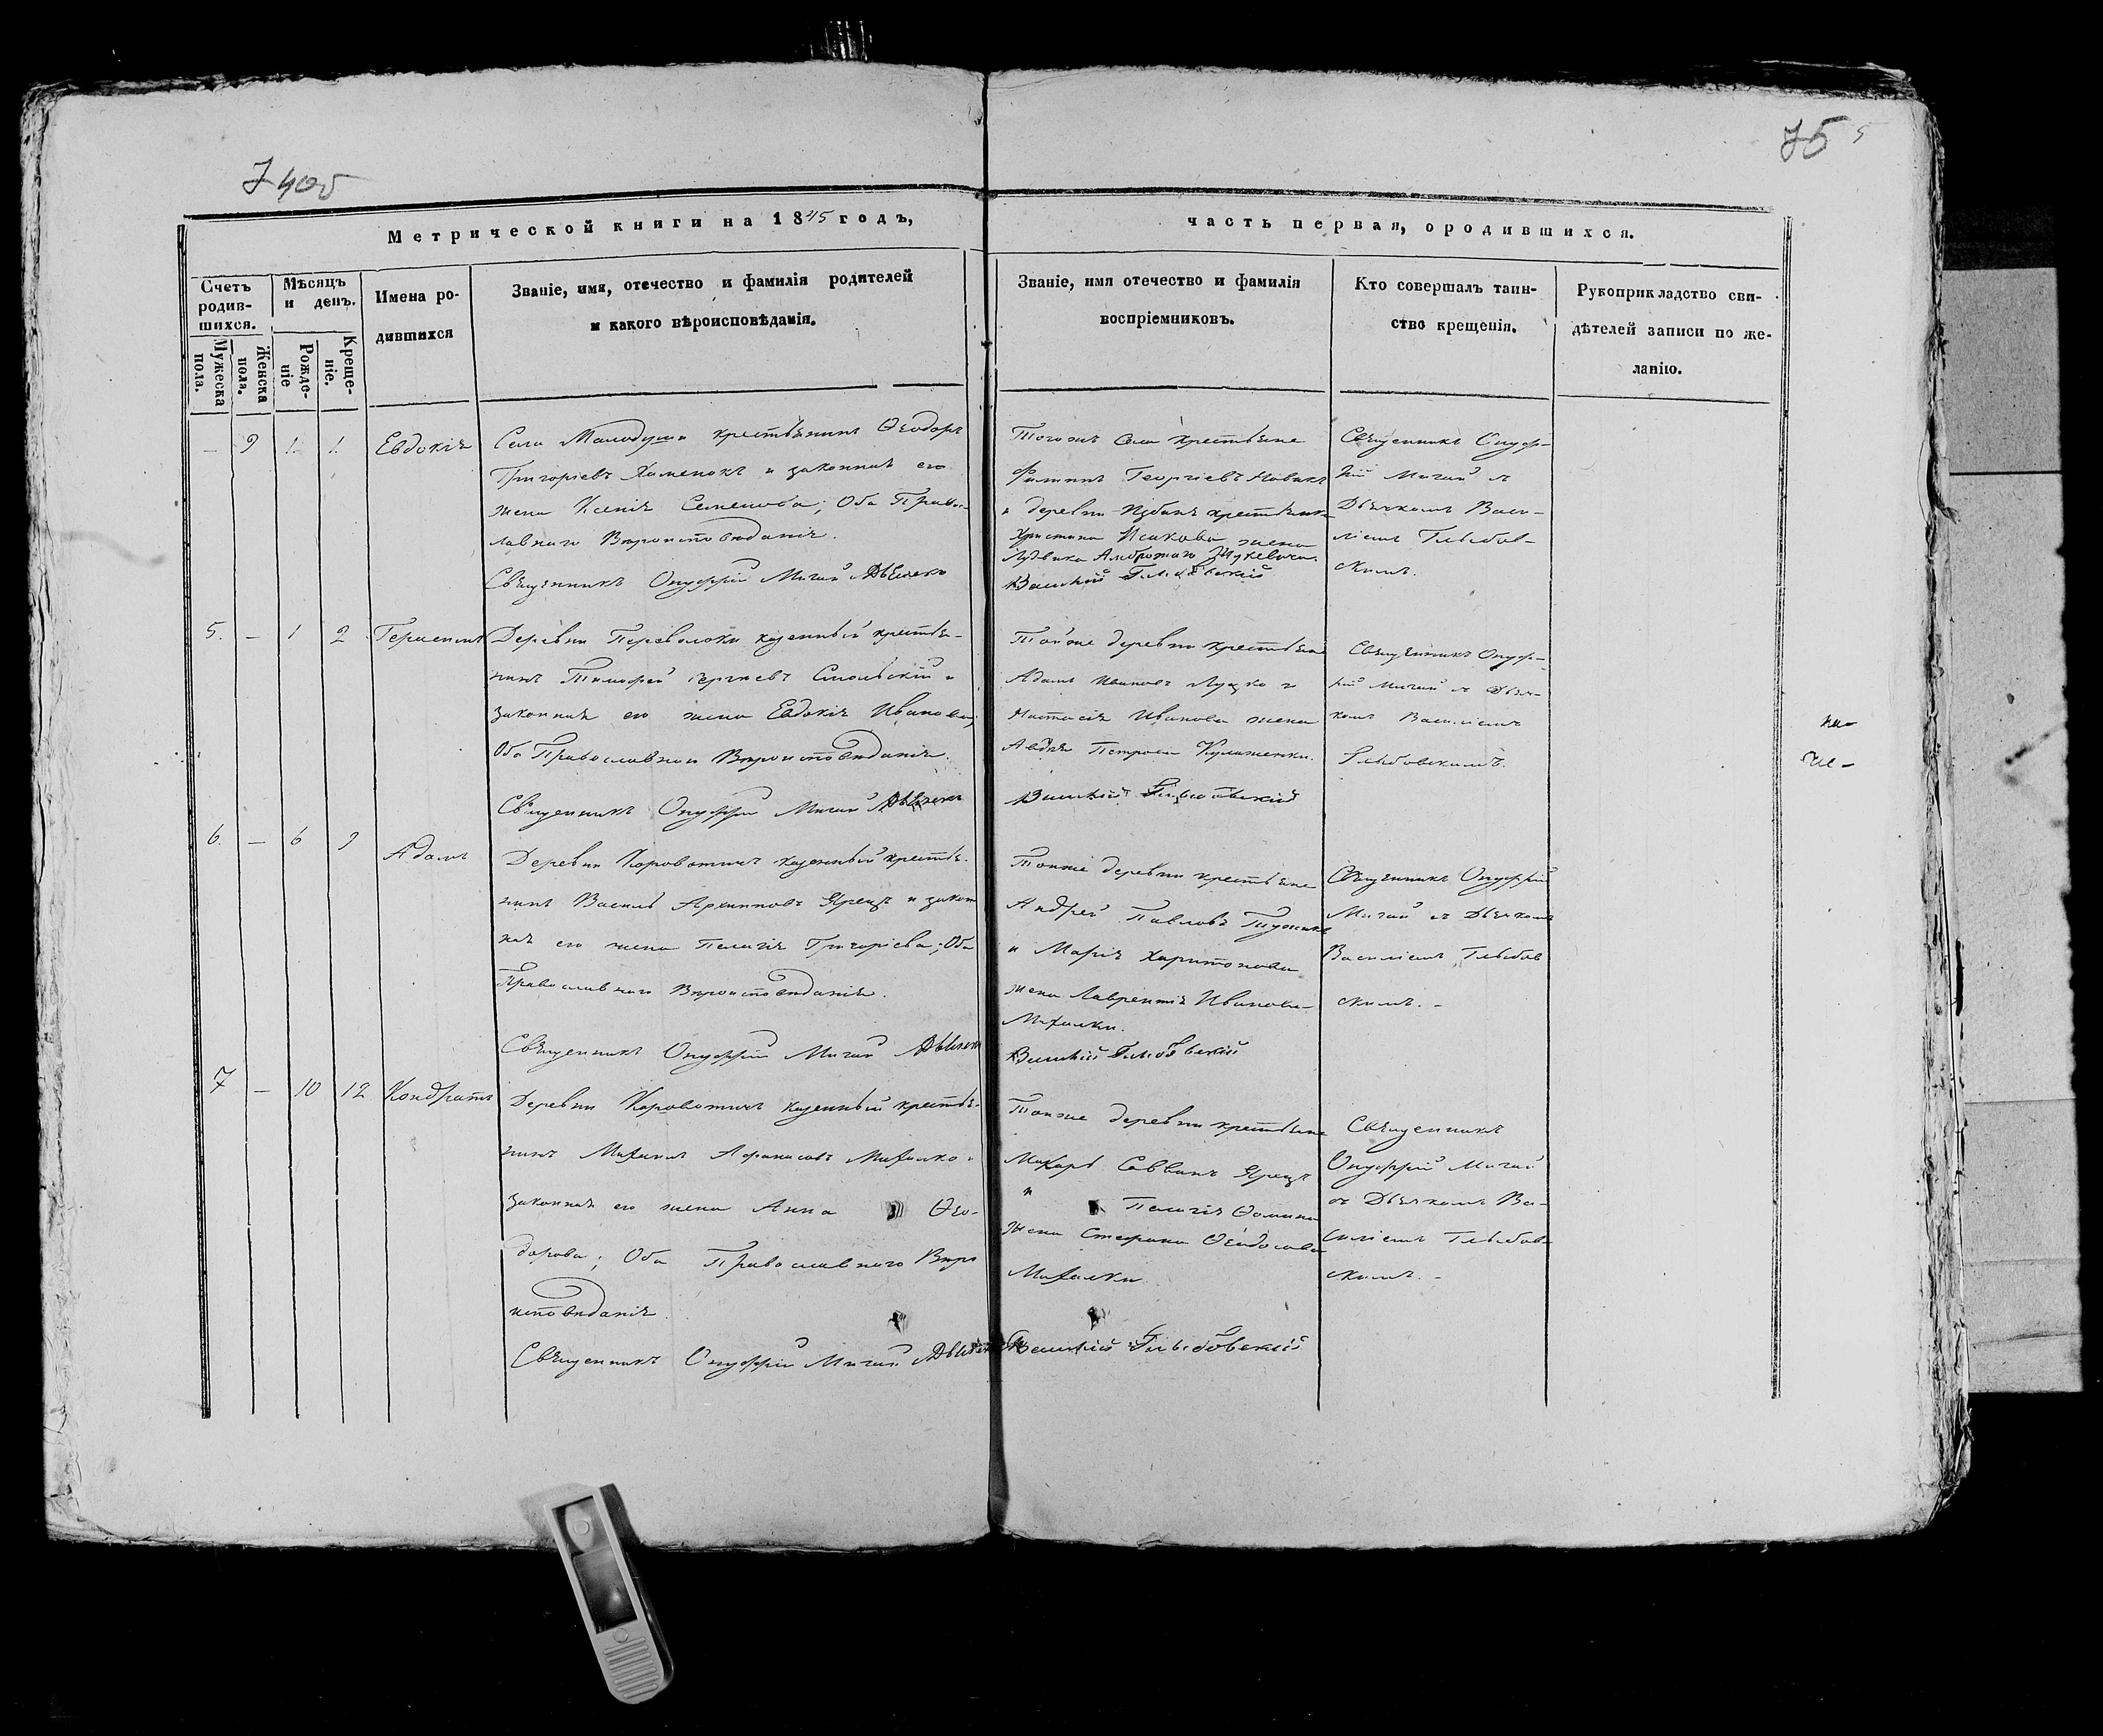 75
5
Метрической книги на 1845 годъ,
часть первая, ородившихся.
Счетъ родив-
шихся.
Мужеска пола.
Женска пола.
Мѣсяцъ и день.
Рожде-
ніе
Креще-
ніе.
Имена ро-
дившихся
Званіе, имя, отечество и фамилія родителей
и какого вѣроисповѣданія.
Званіе, имя отечество и фамилія
воспріемниковъ.
Кто совершалъ таин-
ство крещенія.
Рукоприкладство сви-
дѣтелей записи по же-
ланію.
— 9 1. 1. Евдокія
Села Малодуша крестьянинъ Ѳеодоръ
Григоріевъ Хоменокъ и законная его
жена Ксенія Семенова; Оба Правос-
лавнаго Вѣроисповѣданія.
Священникъ Онуфрій Мигай Дьячекъ
Тогоже села крестьяне
Георгіевъ Новикъ
и деревни крестьянка
Христина Исакова жена
Василій Глыбовскій
Священникъ Онуф-
рій Мигай съ
Дьячкомъ Васи-
ліемъ Глыбов-
скимъ.
5. — 1 2 Герасимъ
Деревни Переволоки казенный крестья-
нинъ Тимофей Сергіевъ Смольскій и
законная его жена Евдокія Иванова;
Оба Православнаго Вѣроисповѣданія.
Священникъ Онуфрій Мигай Дьячекъ
Тойже деревни крестьяне
Адамъ Ивановъ Луцко и
Настасія Иванова жена
Авдѣя Петрова
Василій Глыбовскій
Священникъ Онуф-
рій Мигай съ Дьяч-
комъ Василіемъ
Глыбовскимъ.
6. — 6 9 Адамъ
Деревни Короватичъ казенный крестья-
нинъ Василь Архиповъ Ярецъ и закон
ная его жена Пелагія Григоріева; Оба
Православнаго Вѣроисповѣданія.
Священникъ Онуфрій Мигай Дьячекъ
Тойже деревни крестьяне
Андрей Павловъ
и Марія Харитонова
жена Лаврентія Иванова
Михалки.
Василій Глыбовскій
Священникъ Онуфрій
Мигай съ Дьячкомъ
Василіемъ Глыбов
скимъ. -
7 — 10 12 Кондратъ
Деревни Короватичъ казенный крестья-
нинъ Михаилъ Афанасовъ Михалко и
законная его жена Анна Ѳео-
дорова; Оба Православнаго Вѣро
исповѣданія.
Священникъ Онуфрій Мигай Дьячекъ
Тойже деревни крестьяне
Макаръ Саввинъ Ярецъ
и Пелагія Ѳомина
жена Стефана Ѳеодосова
Михалки
Василій Глыбовскій
Священникъ
Онуфрій Мигай
съ Дьячкомъ Ва-
силіемъ Глыбов-
скимъ. -